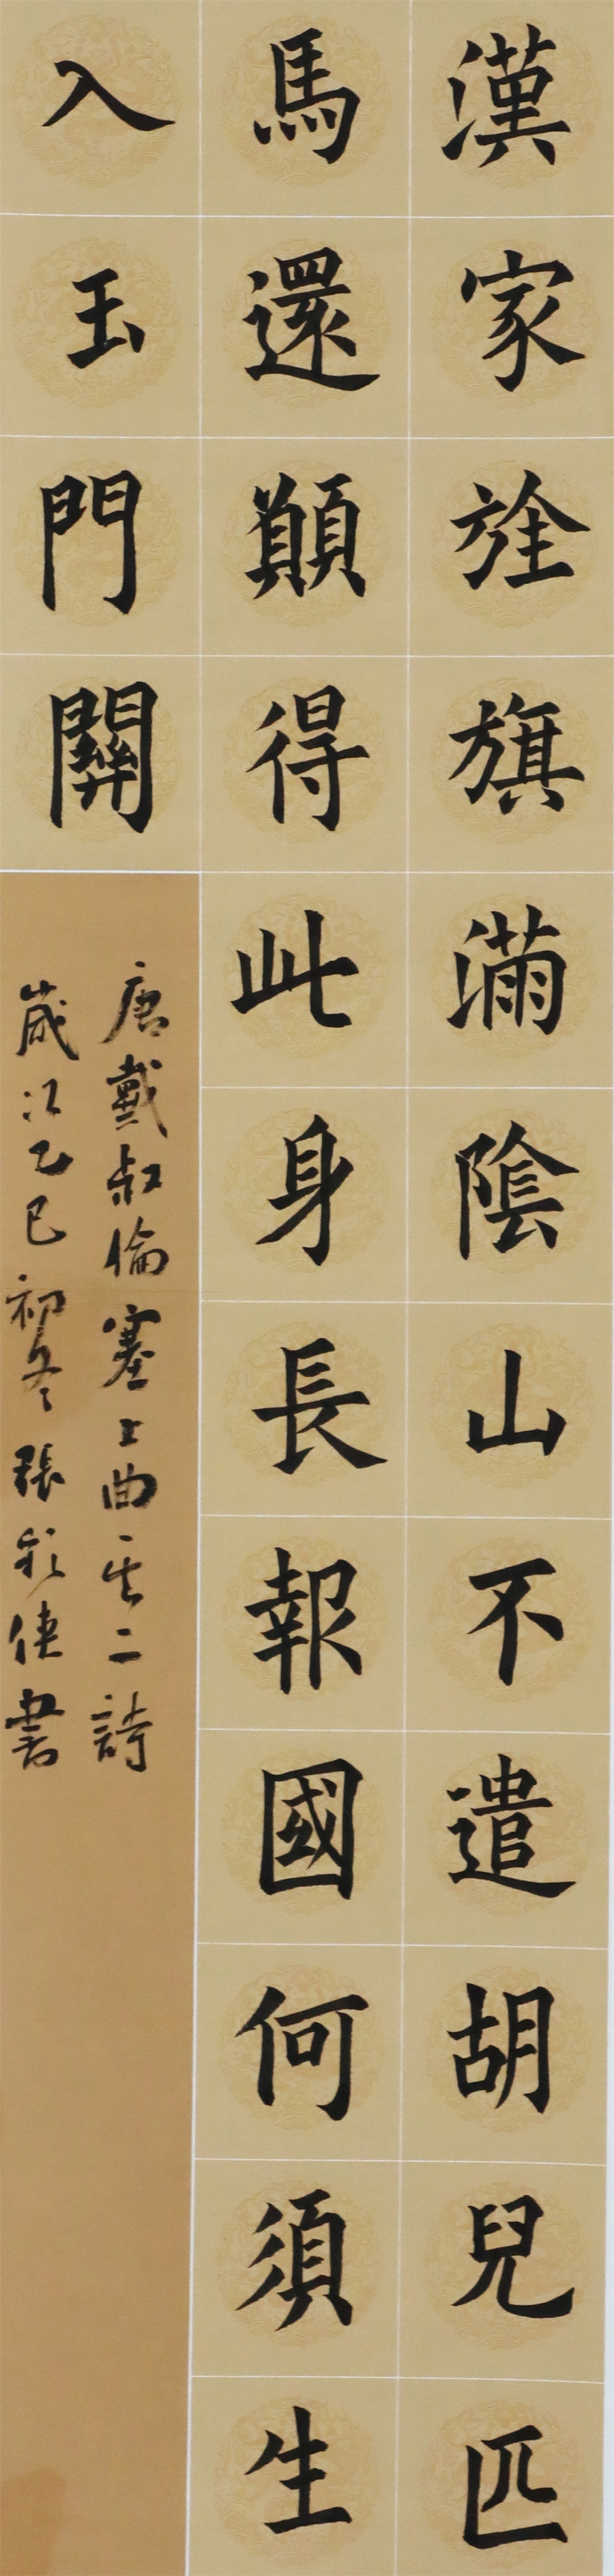 漢家旌旗滿陰山不遣胡兒匹
馬還願得此身長報國何須生
入玉門關
唐戴叔倫塞上曲其二詩
歲次乙巳初冬張書